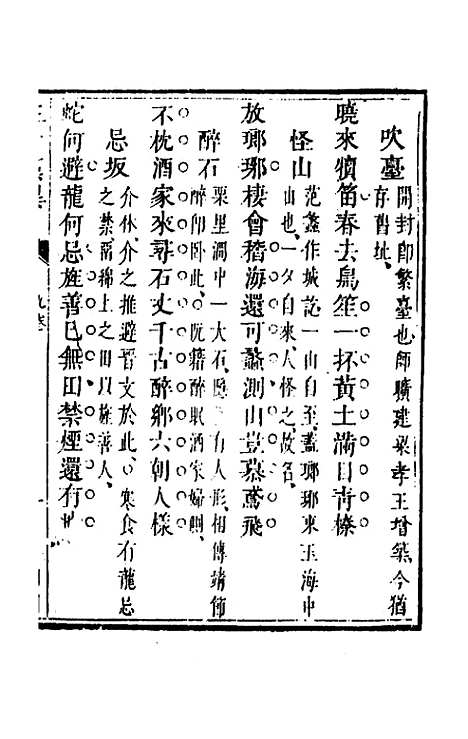 吹臺 開封卽繁臺也師曠建梁孝王增築今猶
存舊址、
曉來犢笛春去鳧笙一抔黃土滿目靑榛
怪山 范蠡作城訖一山自至蓋瑯琊東玉海中
山也、一夕自來人怪之故名、
放瑯琊棲會稽海還可蠡測山豈慕鳶飛
醉石 栗里澗中一大石有人形相傳靖節
醉卽卧此、阮籍醉眠酒家婦側、
不枕酒家來尋石丈千古醉鄉六朝人樣
忌坂 介休介之推避晉文於此、寒食有龍忌
之禁、爲綿上之田以旌善人、
蛇何避龍何忌旌善已無田禁煙還有